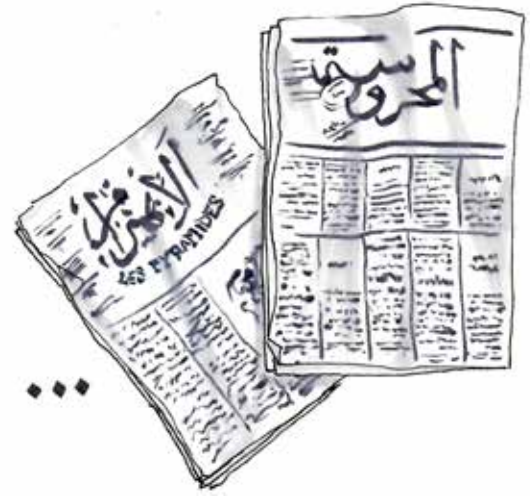 المحروسة
الأهرام
LES PYRAMIDES